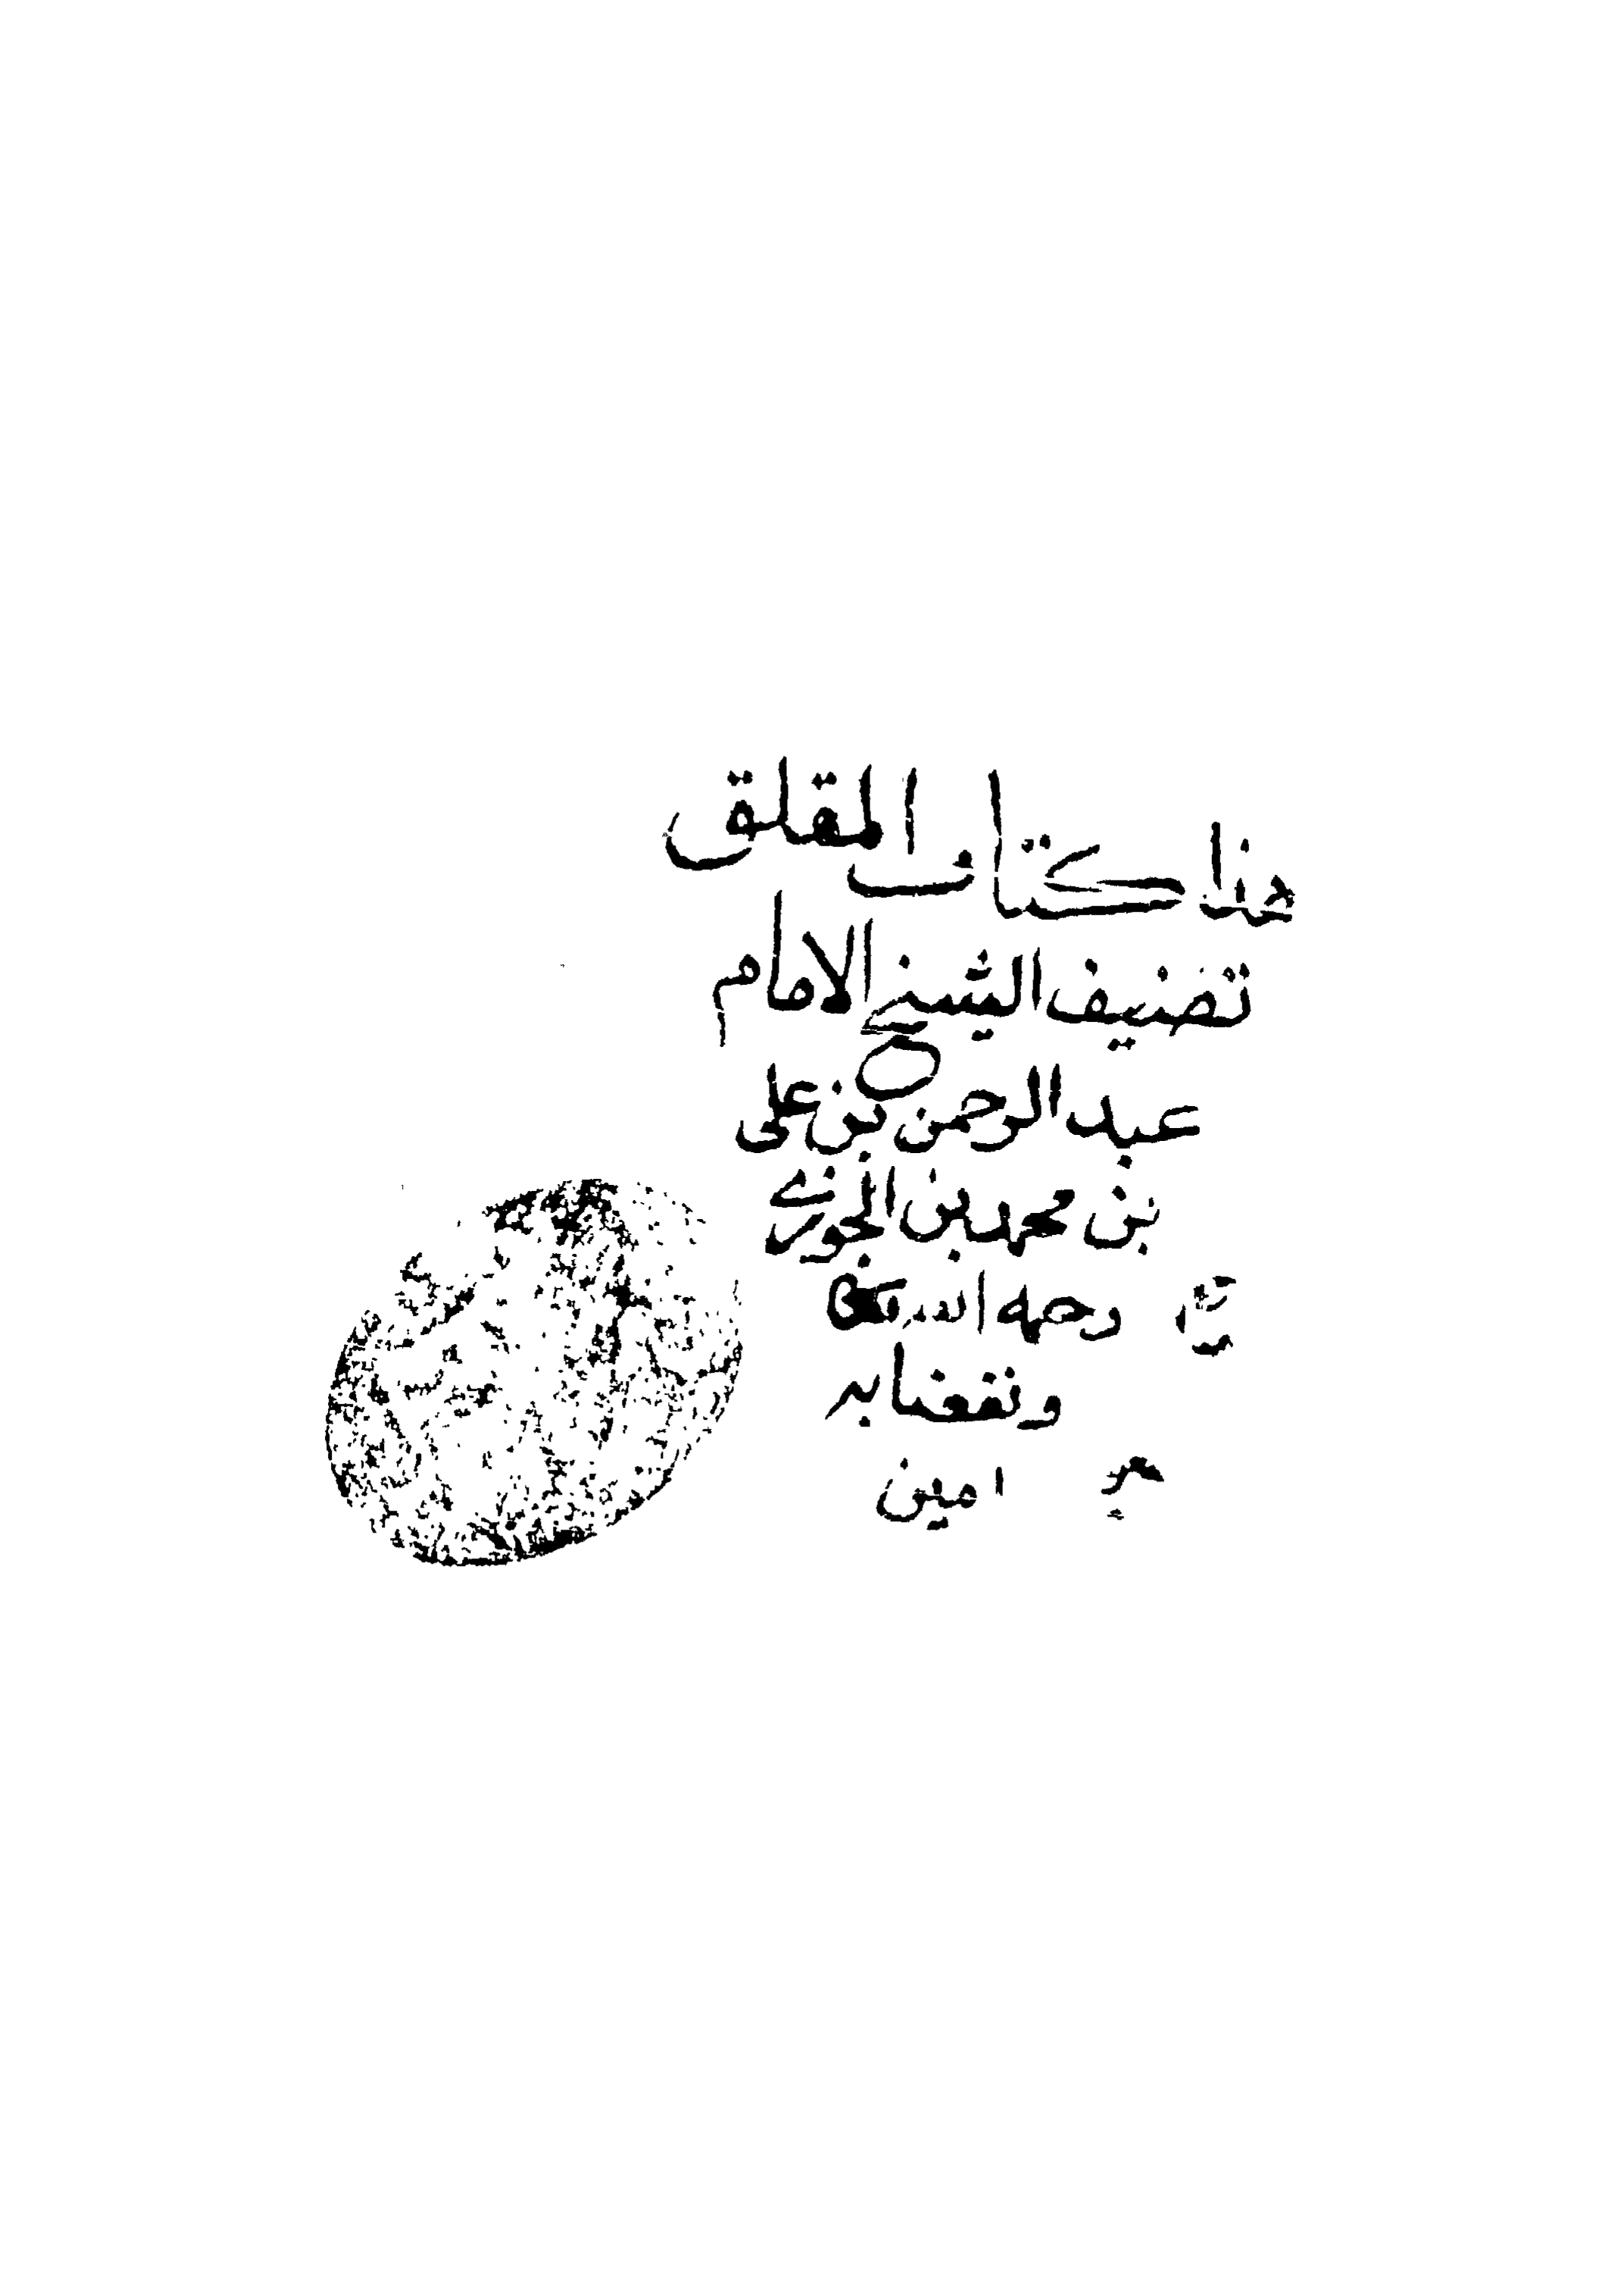 هذا كتاب المقلق
تصنيف الشيخ الامام
عبد الرحمن بن على
بن محمد بن الجوزى
رحمه الله
ونفعنا به
امين